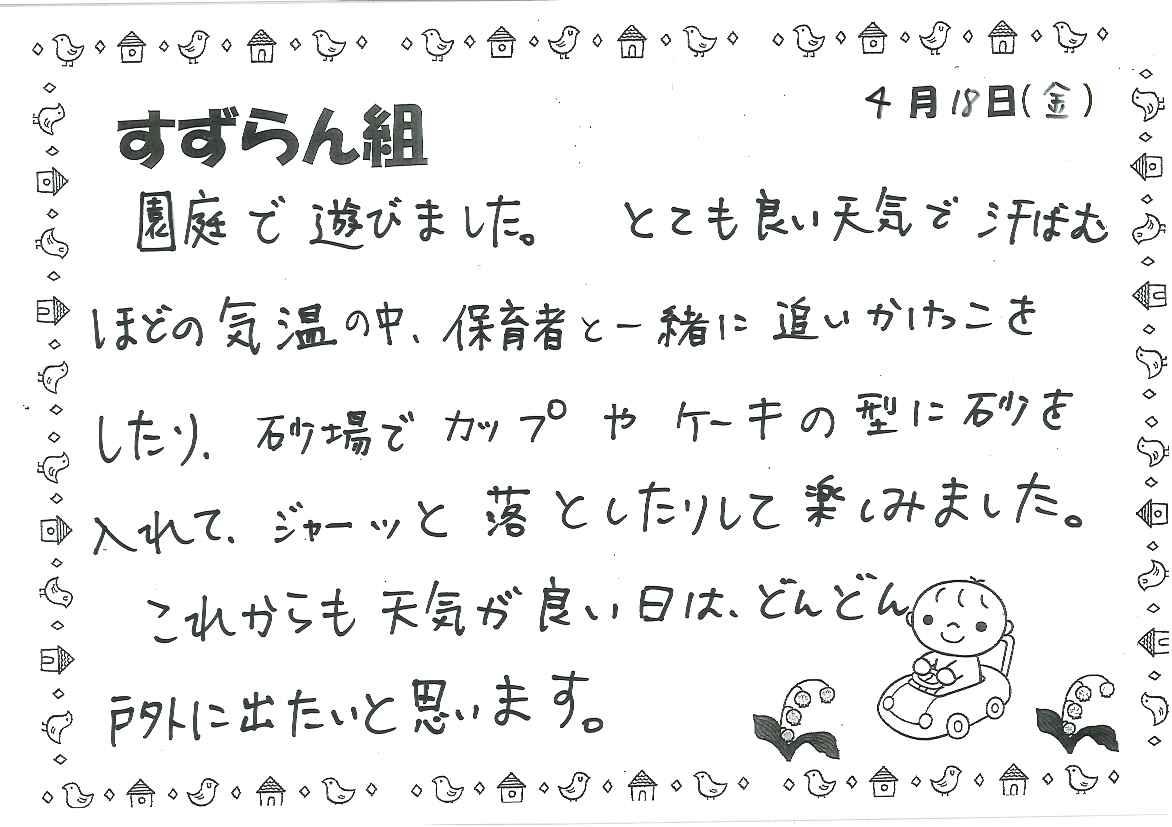 4月18日(金)
すずらん組
園庭で遊びました。 とても良い天気で汗ばむ
ほどの気温の中、保育者と一緒に追いかけっこを
したり、砂場でカップやケーキの型に砂を
入れて、ジャーッと落としたりして楽しみました。
これからも天気が良い日は、どんどん
戸外に出たいと思います。